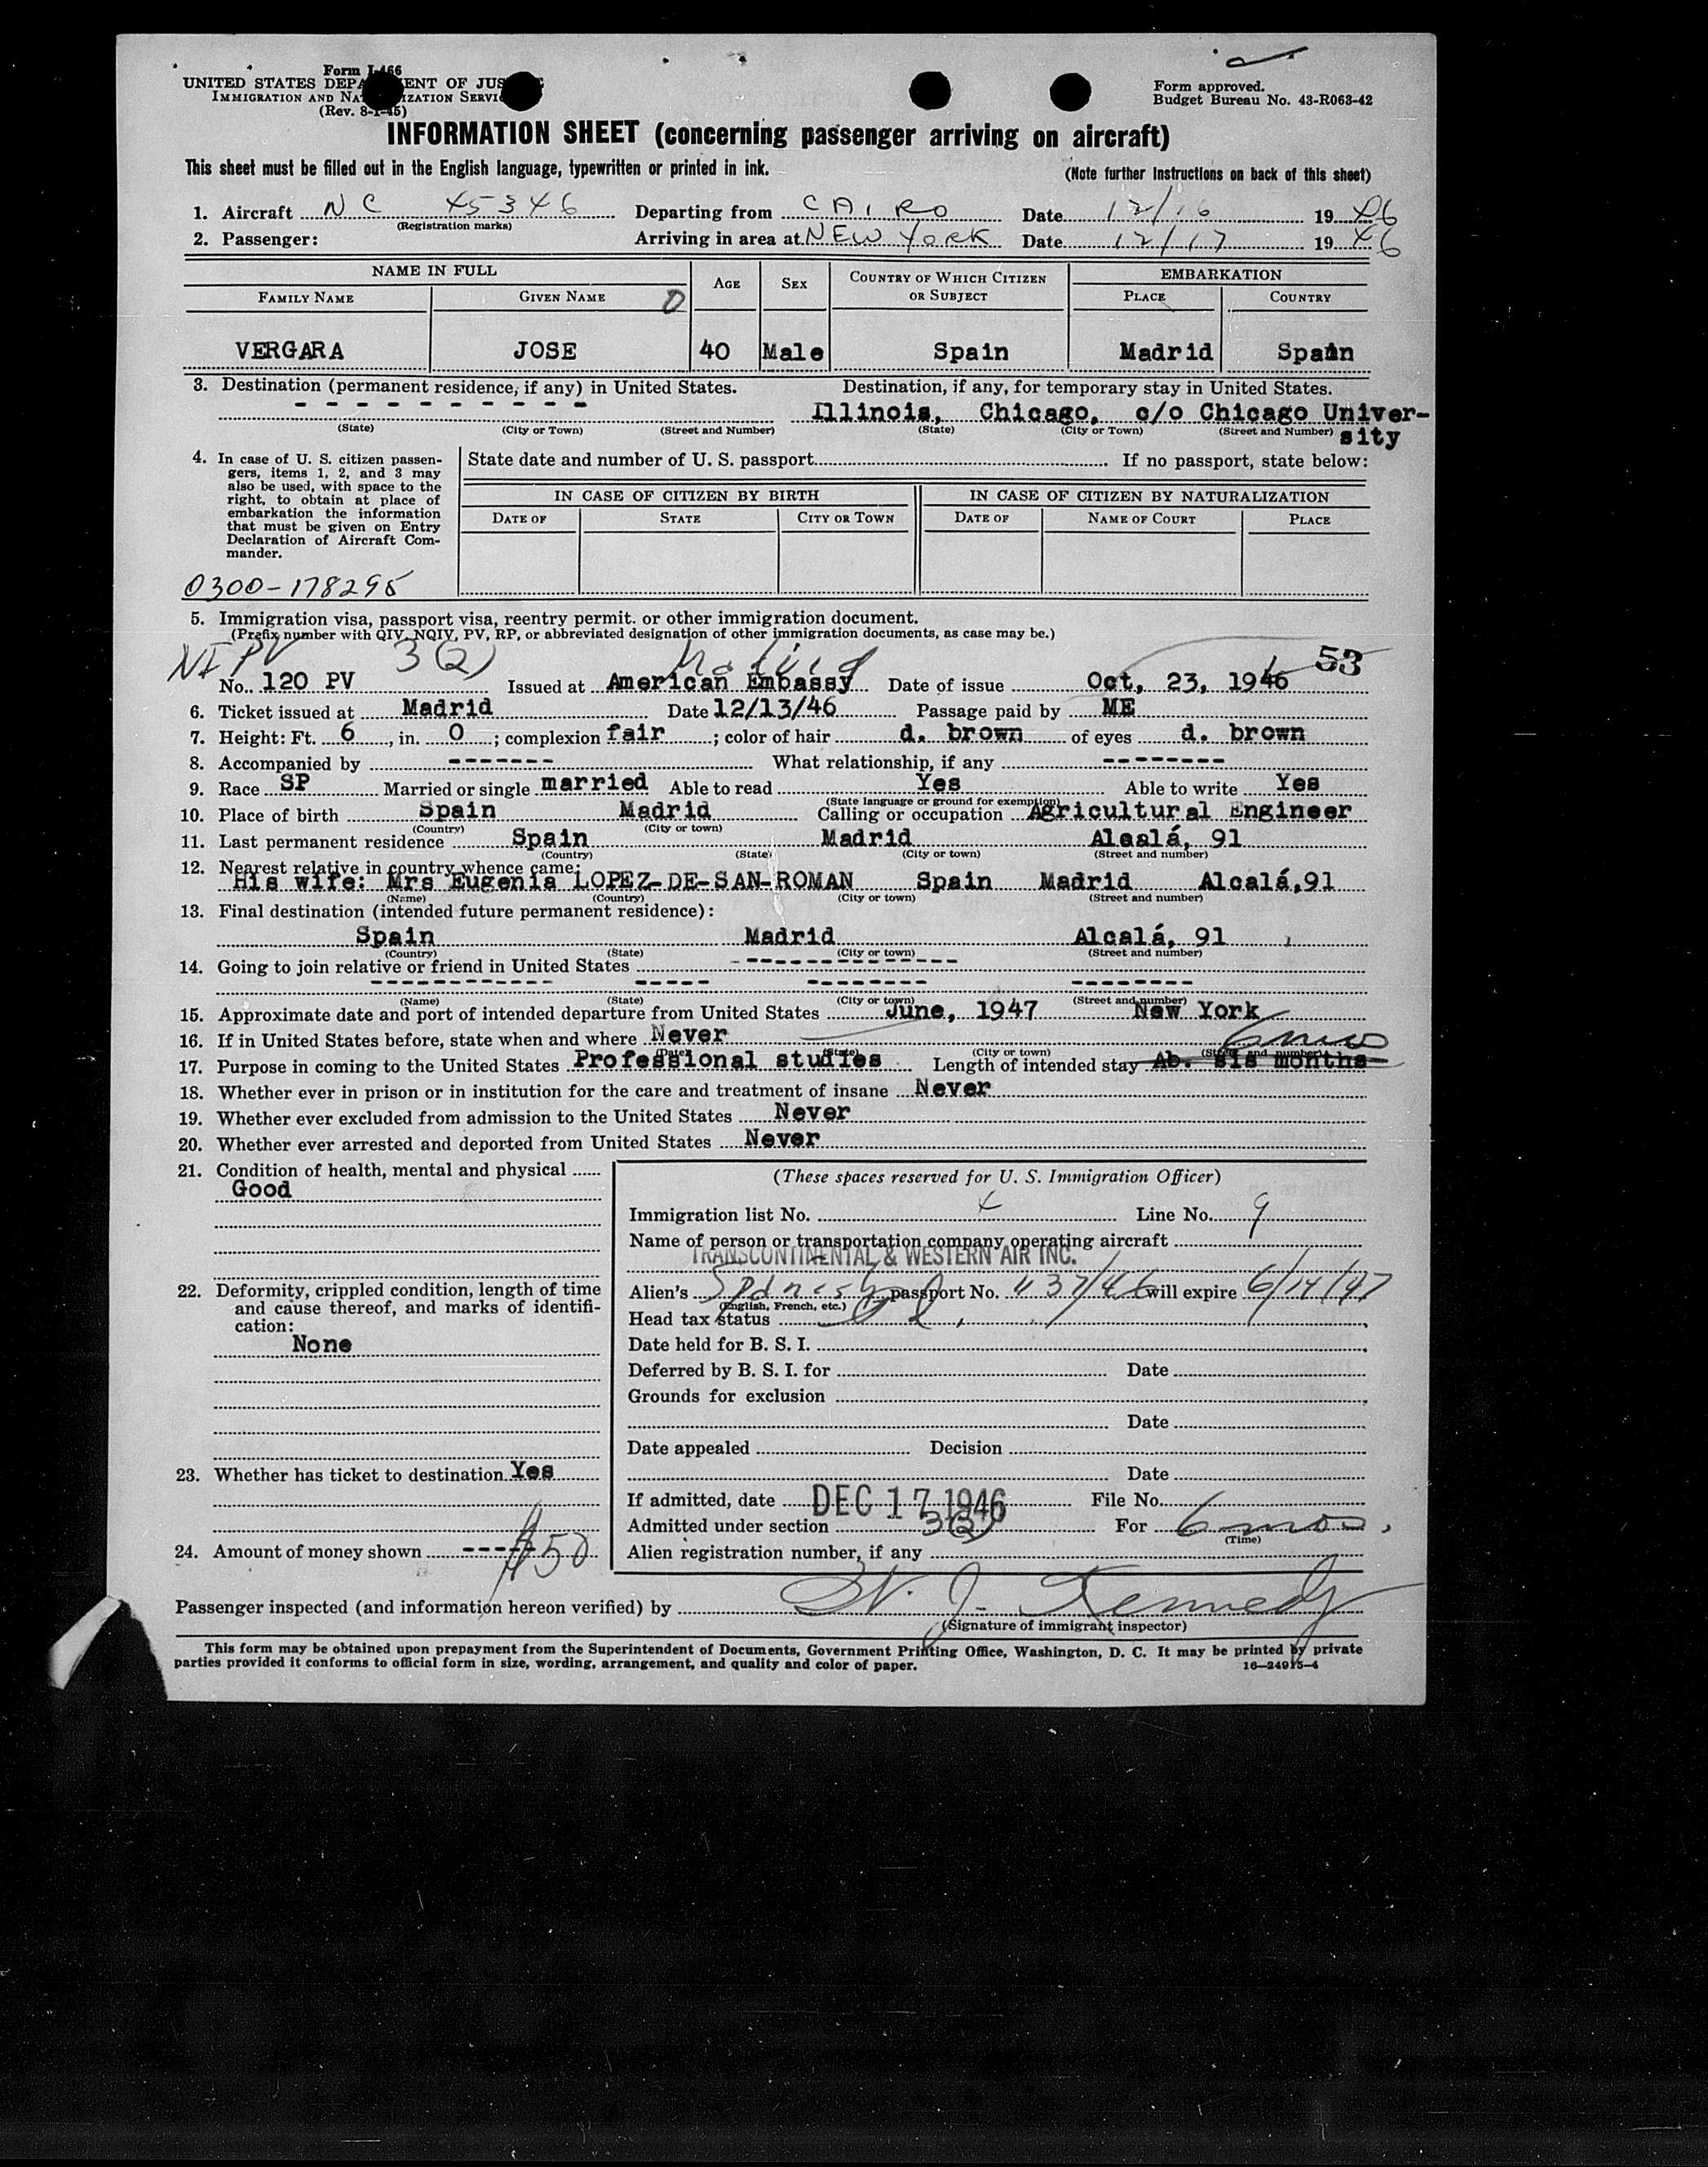 Form I-466
UNITED STATES DEPARTMENT OF JUSTICE
IMMIGRATION AND NATURALIZATION SERVICE
(Rev. 8-1-45)
Form approved.
Budget Bureau No. 43-R063-42
INFORMATION SHEET (concerning passenger arriving on aircraft)
This sheet must be filled out in the English language, typewritten or printed in ink. (Note further Instructions on back of this sheet)
1. Aircraft NC 45346 Departing from CAIRO Date 12/16 1946
(Registration marks)
2. Passenger: Arriving in area at NEW YORK Date 12/17 1946
NAME IN FULL AGE SEX COUNTRY OF WHICH CITIZEN OR SUBJECT EMBARKATION
FAMILY NAME GIVEN NAME PLACE COUNTRY
VERGARA JOSE 40 Male Spain Madrid Spain
3. Destination (permanent residence, if any) in United States. Destination, if any, for temporary stay in United States.
- - - - - - - - - - Illinois, Chicago, c/o Chicago Univer-
(State) (City or Town) (Street and Number) (State) (City or Town) (Street and Number) sity
4. In case of U. S. citizen passen-
gers, items 1, 2, and 3 may
also be used, with space to the
right, to obtain at place of
embarkation the information
that must be given on Entry
Declaration of Aircraft Com-
mander.
State date and number of U. S. passport If no passport, state below:
IN CASE OF CITIZEN BY BIRTH IN CASE OF CITIZEN BY NATURALIZATION
DATE OF STATE CITY OR TOWN DATE OF NAME OF COURT PLACE
0300-178295
5. Immigration visa, passport visa, reentry permit. or other immigration document.
(Prefix number with QIV, NQIV, PV, RP, or abbreviated designation of other immigration documents, as case may be.)
NI PV 3(2) Madrid 53
No. 120 PV Issued at American Embassy Date of issue Oct, 23, 1946
6. Ticket issued at Madrid Date 12/13/46 Passage paid by ME
7. Height: Ft. 6, in. 0; complexion fair; color of hair d. brown of eyes d. brown
8. Accompanied by ------- What relationship, if any --------
9. Race SP Married or single married Able to read Yes Able to write Yes
(State language or ground for exemption)
10. Place of birth Spain Madrid Calling or occupation Agricultural Engineer
(Country) (City or town)
11. Last permanent residence Spain Madrid Alcalá, 91
(Country) (State) (City or town) (Street and number)
12. Nearest relative in country whence came:
His wife: Mrs Eugenia LOPEZ-DE-SAN-ROMAN Spain Madrid Alcalá,91
(Name) (Country) (City or town) (Street and number)
13. Final destination (intended future permanent residence):
Spain Madrid Alcalá, 91
(Country) (State) (City or town) (Street and number)
14. Going to join relative or friend in United States -------------
------------ ----- -------- --------
(Name) (State) (City or town) (Street and number)
15. Approximate date and port of intended departure from United States June, 1947 New York
16. If in United States before, state when and where Never
(Date) (State) (City or town) (Street and number)
6 mos
17. Purpose in coming to the United States Professional studies Length of intended stay Ab. sis months
18. Whether ever in prison or in institution for the care and treatment of insane Never
19. Whether ever excluded from admission to the United States Never
20. Whether ever arrested and deported from United States Never
21. Condition of health, mental and physical
Good
22. Deformity, crippled condition, length of time
and cause thereof, and marks of identifi-
cation:
None
23. Whether has ticket to destination Yes
24. Amount of money shown ----- $50
(These spaces reserved for U. S. Immigration Officer)
Immigration list No. 4 Line No. 9
Name of person or transportation company operating aircraft
TRANSCONTINENTAL & WESTERN AIR INC.
Alien's Spanish passport No. 437/46 will expire 6/14/47
(English, French, etc.)
Head tax status
Date held for B. S. I.
Deferred by B. S. I. for Date
Grounds for exclusion
Date
Date appealed Decision
Date
If admitted, date DEC 17 1946 File No.
Admitted under section 3(2) For 6 mos.
(Time)
Alien registration number, if any
Passenger inspected (and information hereon verified) by W. J. Kennedy
(Signature of immigrant inspector)
This form may be obtained upon prepayment from the Superintendent of Documents, Government Printing Office, Washington, D. C. It may be printed by private
parties provided it conforms to official form in size, wording, arrangement, and quality and color of paper. 16-24915-4